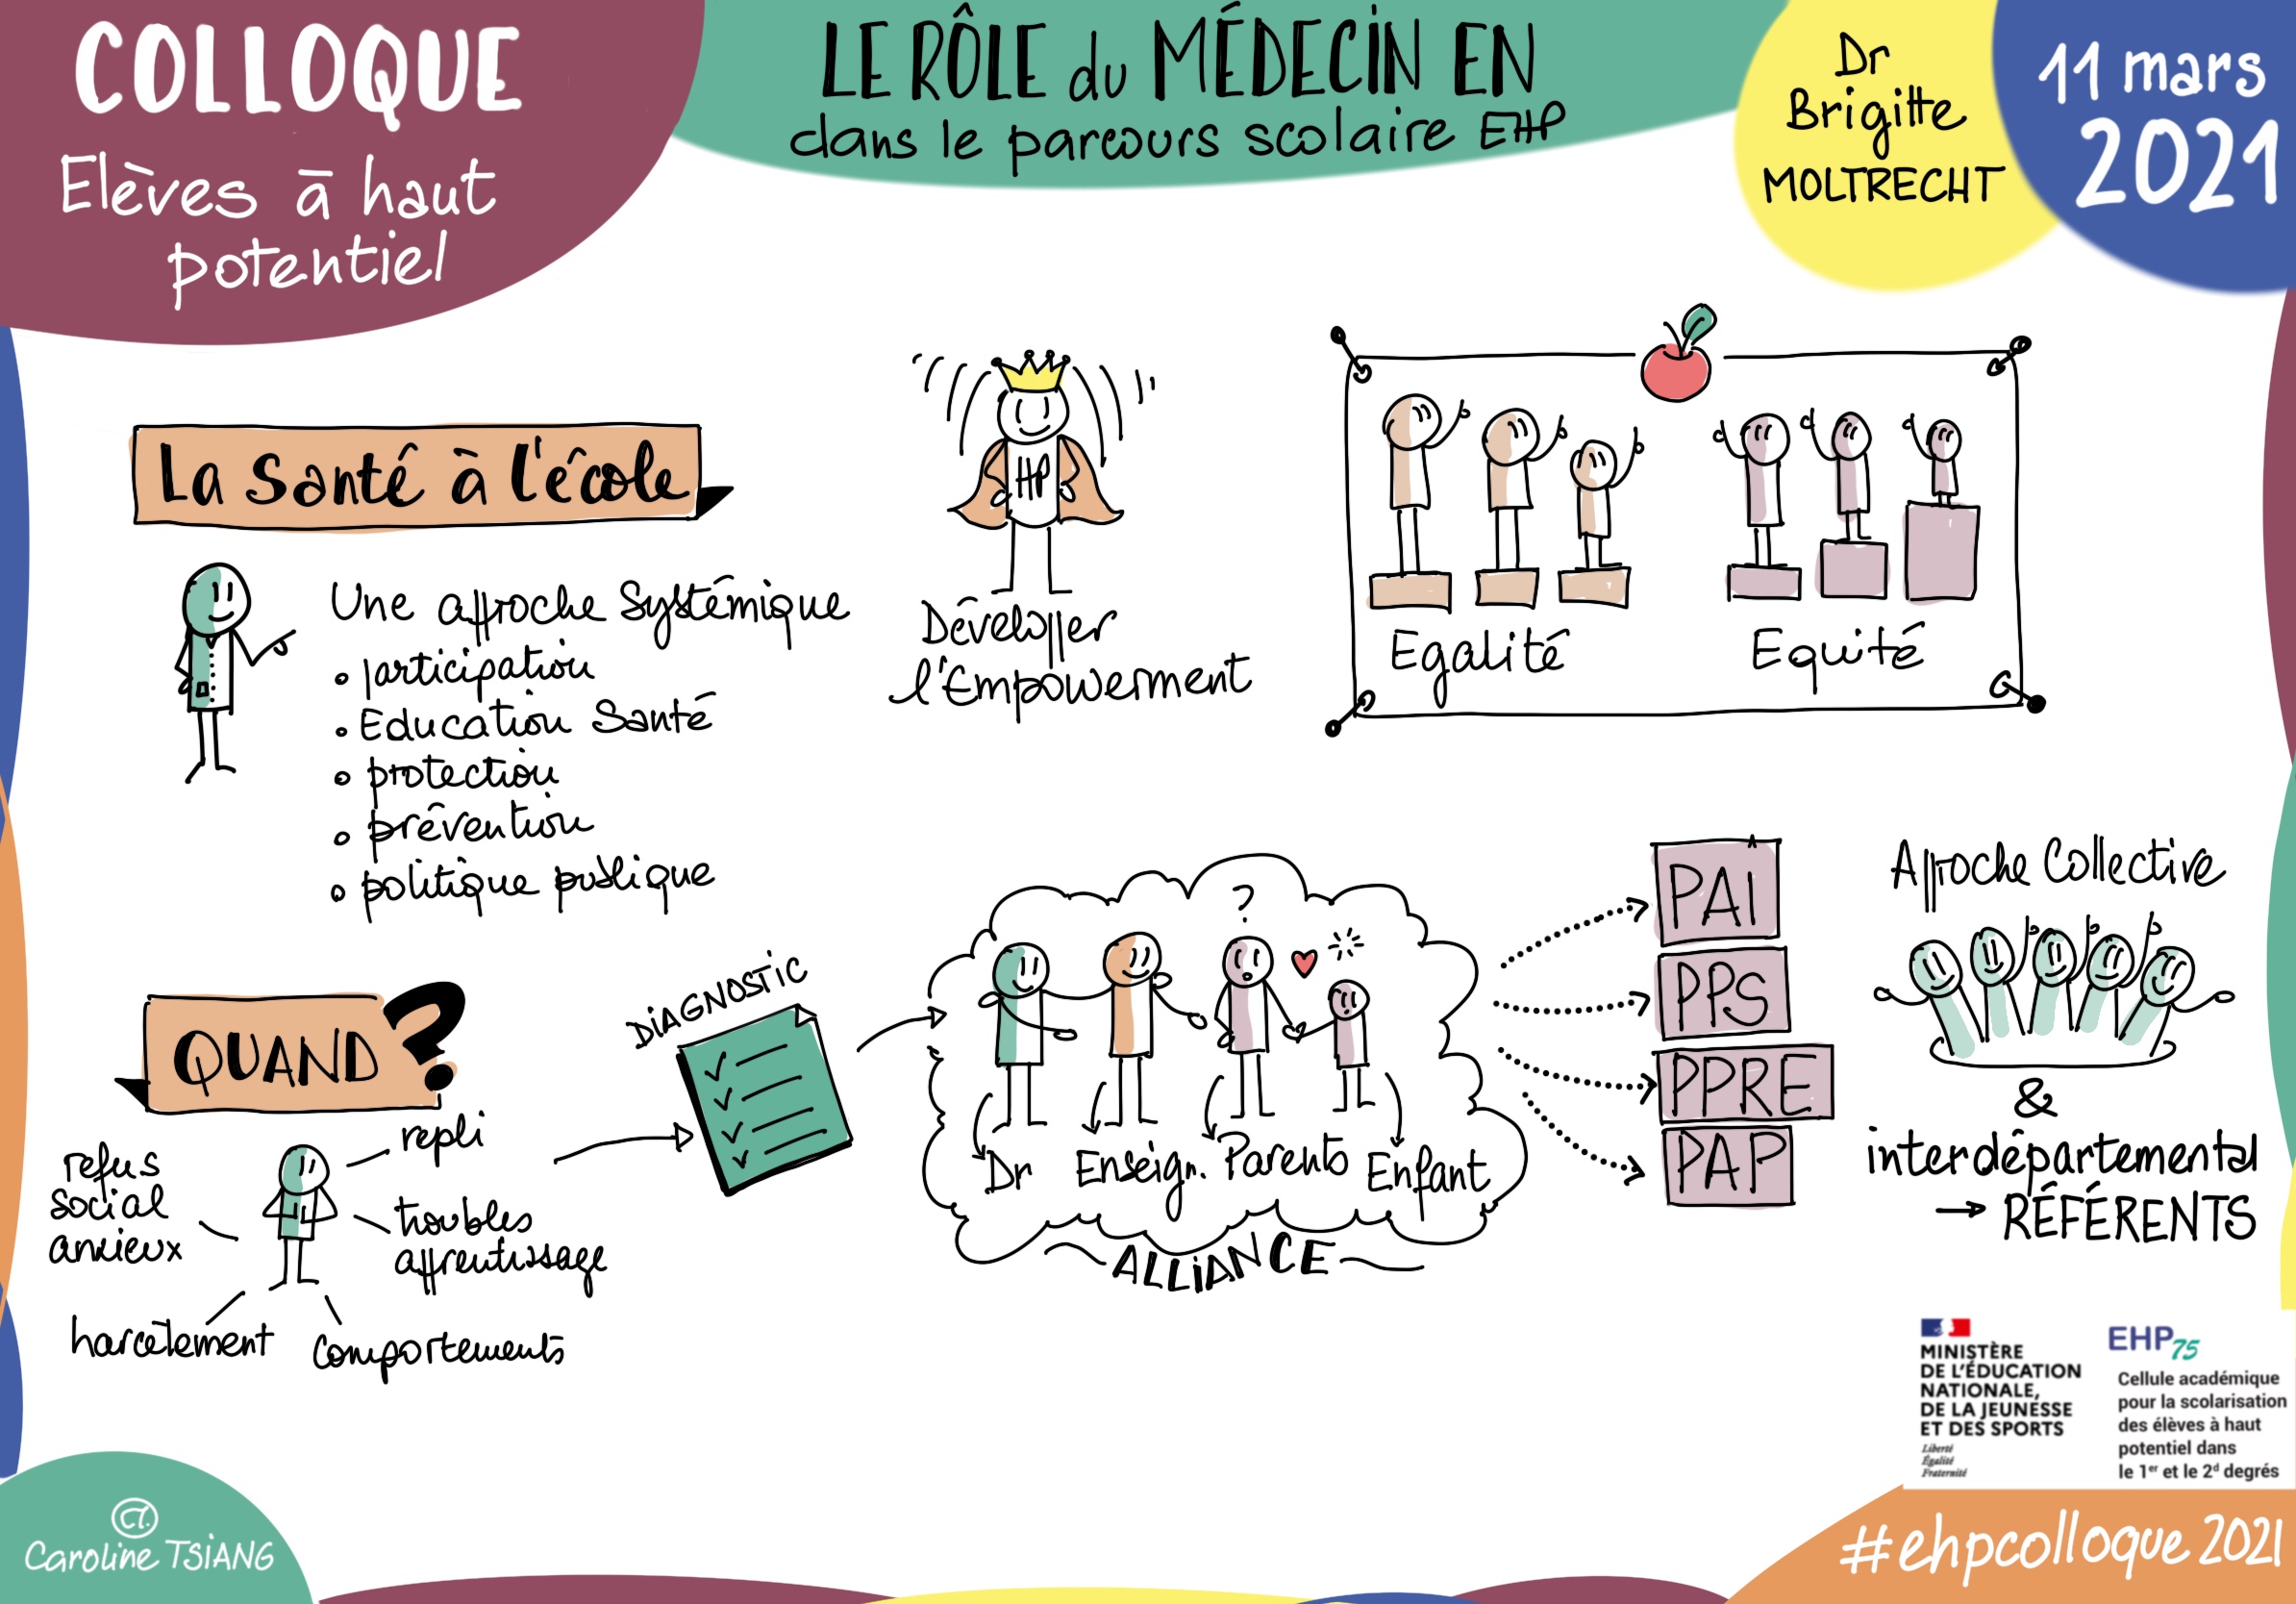 COLLOQUE
Elèves à haut
potentiel
LE RÔLE du MÉDECIN EN
dans le parcours scolaire EHP
Dr
Brigitte
MOLTRECHT
11 mars
2021
La Santé à l'école
Une approche Systémique
• participation
• Education Santé
• protection
• prévention
• politique publique
HP
Développer
l'Empowerment
Egalité
Equité
QUAND ?
repli
refus
social
anxieux
troubles
apprentissage
harcèlement
comportements
DIAGNOSTIC
?
Dr
Enseign.
Parents
Enfant
ALLIANCE
PAI
PPS
PPRE
PAP
Approche Collective
&
interdépartemental
→ RÉFÉRENTS
MINISTÈRE
DE L'ÉDUCATION
NATIONALE,
DE LA JEUNESSE
ET DES SPORTS
Liberté
Égalité
Fraternité
EHP75
Cellule académique
pour la scolarisation
des élèves à haut
potentiel dans
le 1er et le 2d degrés
CT.
Caroline TSIANG
#ehpcolloque 2021